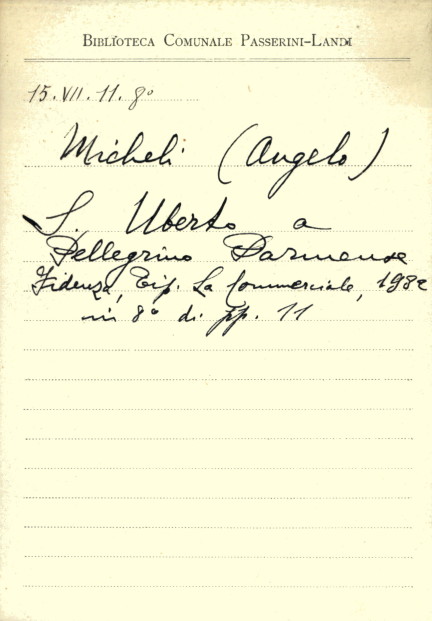 BIBLIOTECA COMUNALE PASSERINI-LANDI
15. VII. 11. 8º
Micheli (Angelo)
S. Uberto a
Pellegrino Parmense
Fidenza, Tip. La Commerciale, 1932
in 8º di pp. 11